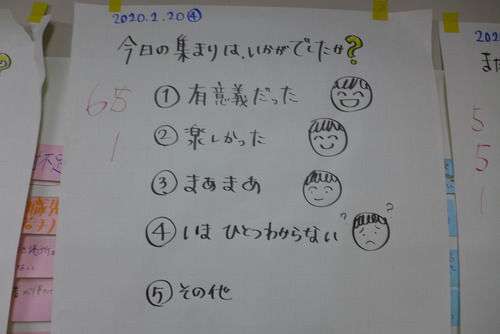 2020.2.20④
今日の集まりは、いかがでしたか?
65 ①有意義だった
1 ②楽しかった
③まあまあ
④いまひとつわからない
? ?
⑤その他
?
不足
202
また
5
5
1